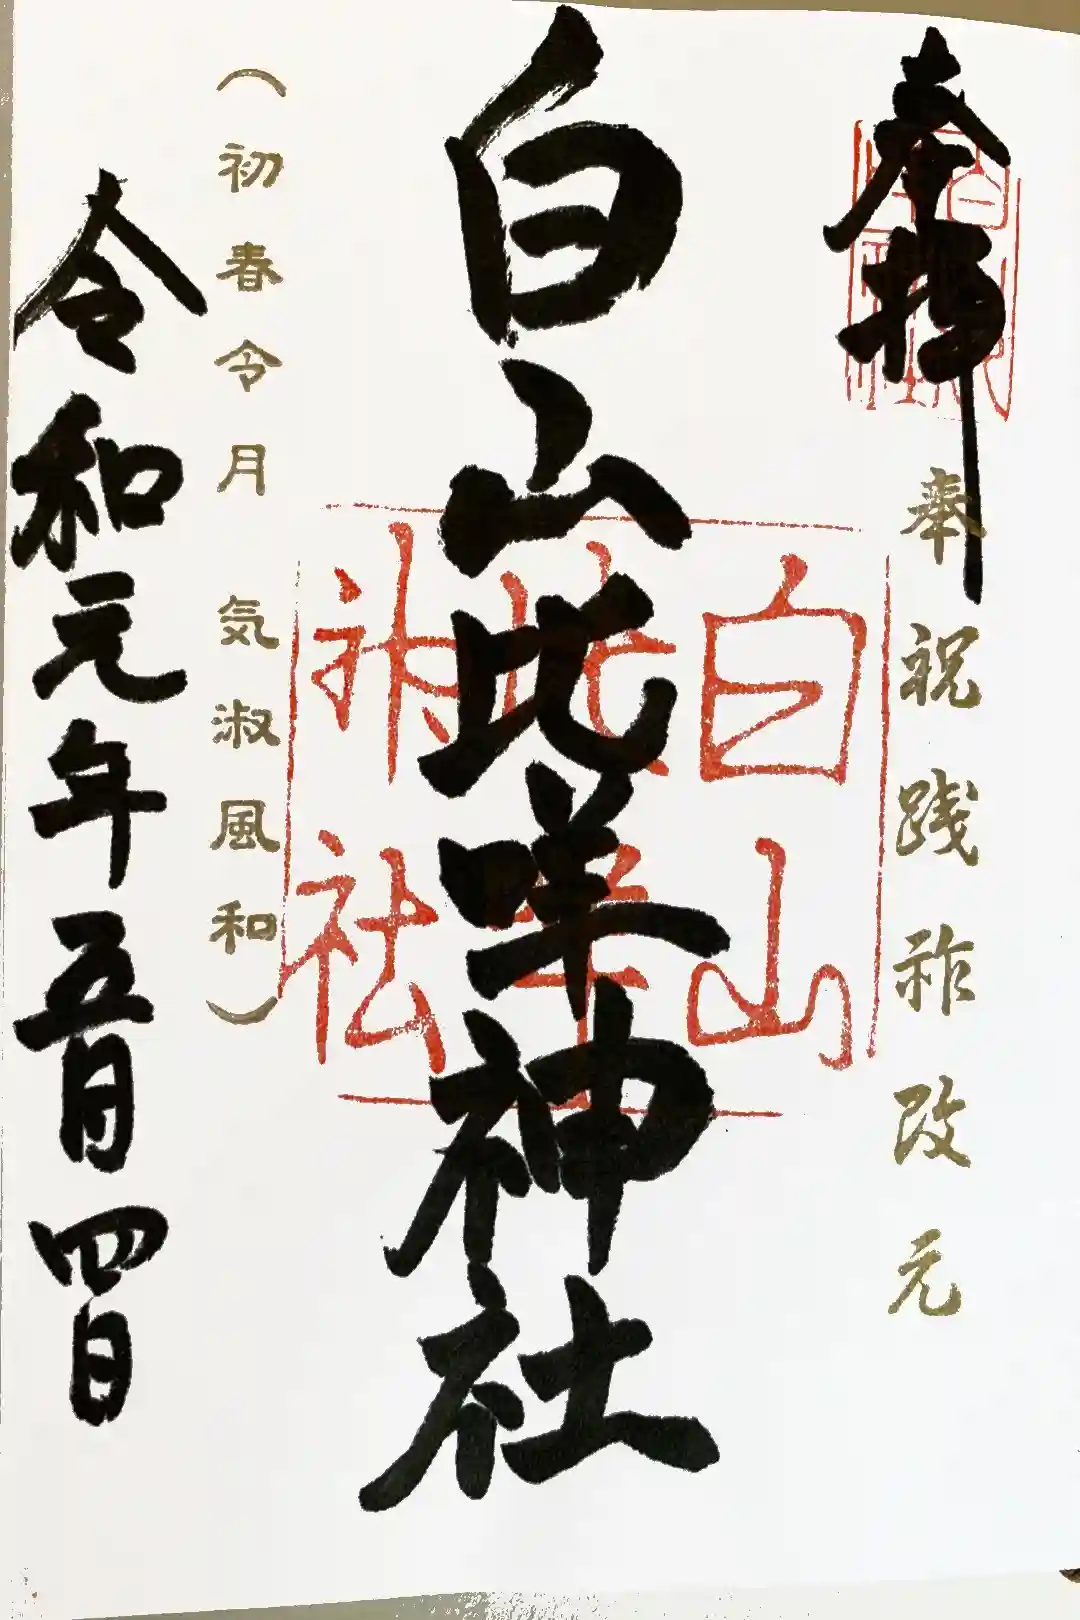 奉拝
奉祝践祚改元
白山比咩神社
白山比咩神社
（初春令月 気淑風和）
令和元年五月四日